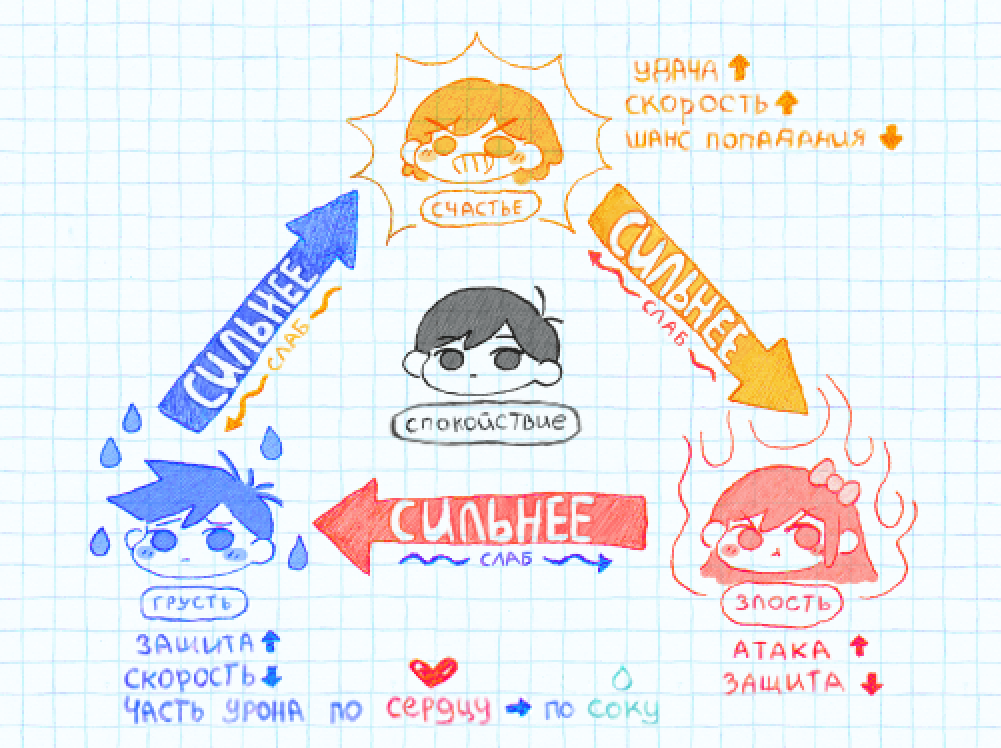 УДАЧА
СКОРОСТЬ
ШАНС ПОПАДАНИЯ
СЧАСТЬЕ
СИЛЬНЕЕ
СЛАБ
СИЛЬНЕЕ
СЛАБ
СПОКОЙСТВИЕ
СИЛЬНЕЕ
СЛАБ
ГРУСТЬ
ЗАЩИТА
СКОРОСТЬ
ЧАСТЬ УРОНА ПО сердцу ПО соку
ЗЛОСТЬ
АТАКА
ЗАЩИТА